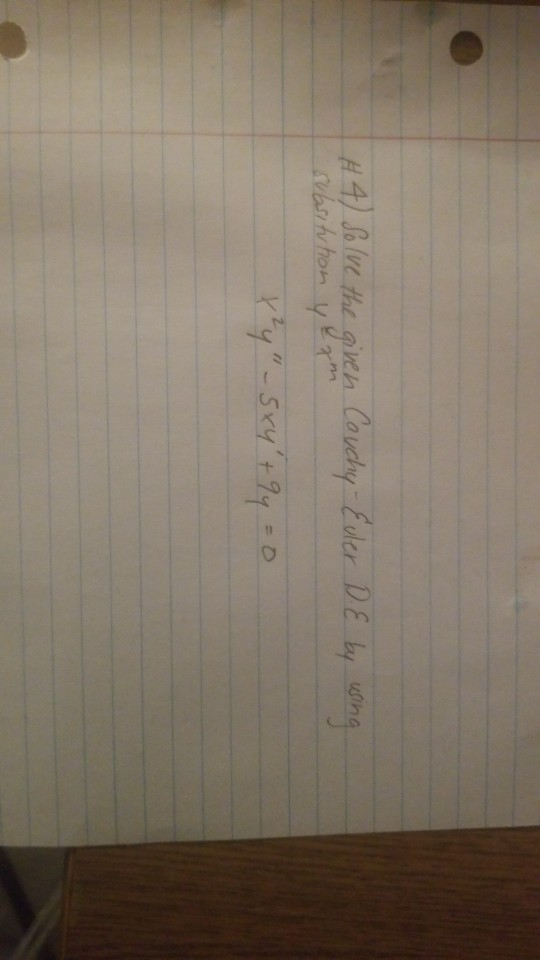 #4) Solve the given Cauchy-Euler D.E by using
subsitution y = x^m
x²y" - 5xy' + 9y = 0